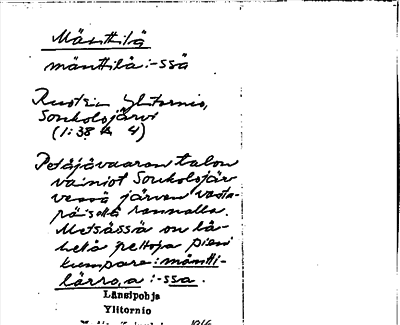 Mänttilä
mänttilä:-ssä
Ruotsin Ylitornio,
Soukolojärvi
(1:38 4)
Petäjävaaran talon
vainiot Soukolojär
vessä järven vasta-
päisellä rannalla.
Metsässä on lä-
hellä peltoja pieni
kumpare: mäntti-
lärro,a :-ssa.
Länsipohja
Ylitornio